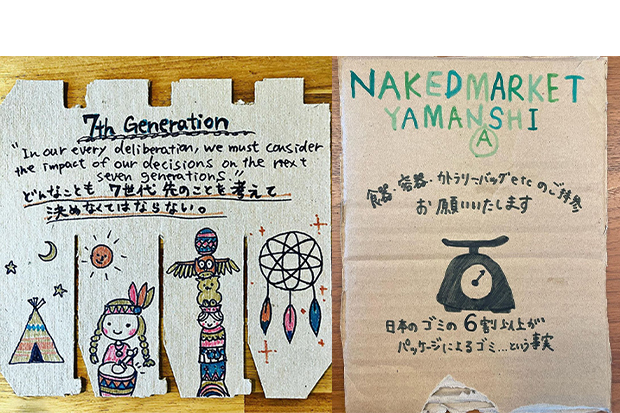 7th Generation
"In our every deliberation, we must consider
the impact of our decisions on the next
seven generations."
どんなことも 7世代 先のことを考えて
決めなくてはならない。
NAKEDMARKET
YAMANSHI
A
食器・容器・カトラリー・バッグetcのご持参
お願いいたします
日本のゴミの6割以上が
パッケージによるゴミ...という事実